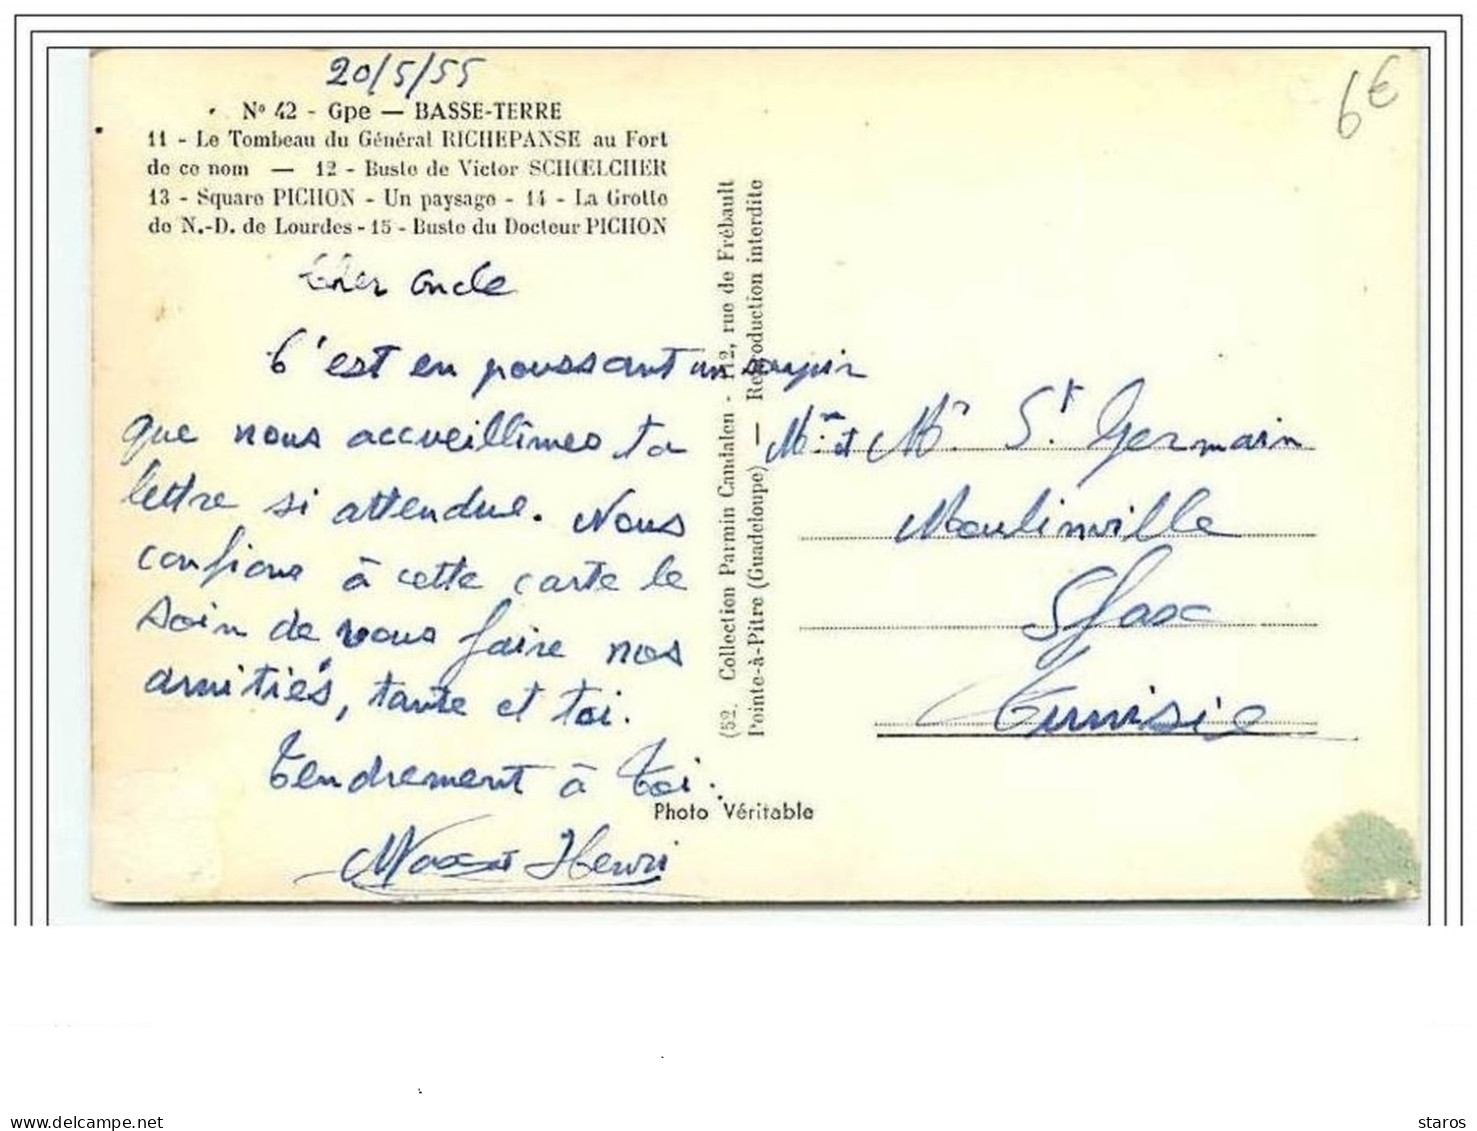 20/5/55
6€
Nº 42 - Gpe — BASSE-TERRE
11 - Le Tombeau du Général RICHEPANSE au Fort
de ce nom — 12 - Buste de Victor SCHŒLCHER
13 - Square PICHON - Un paysage - 14 - La Grotte
de N.-D. de Lourdes - 15 - Buste du Docteur PICHON
Cher oncle
C'est en poussant un soupir
que nous accueillîmes ta
lettre si attendue. Nous
confions à cette carte le
soin de vous faire nos
amitiés, tante et toi.
Tendrement à toi.
Henri
(52. Collection Parmin Candalen - 112, rue de Frébault
Pointe-à-Pitre (Guadeloupe) — Reproduction interdite
Photo Véritable
Mme et Mr St Germain
Moulinville
Sfax
Tunisie
www.delcampe.net
staros